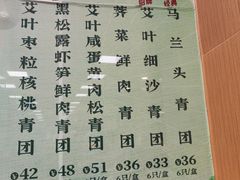 艾叶枣粒核桃青团
¥42
黑松露虾笋鲜肉青团
¥48
艾叶咸蛋黄肉松青团
¥51
6只/盒
荠菜鲜肉青团
¥36
6只/盒
艾叶细沙青团
¥33
6只/盒
马兰头青团
¥36
6只/盒